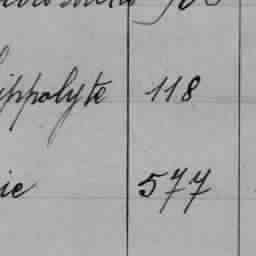 ippolyte 118
ie 577